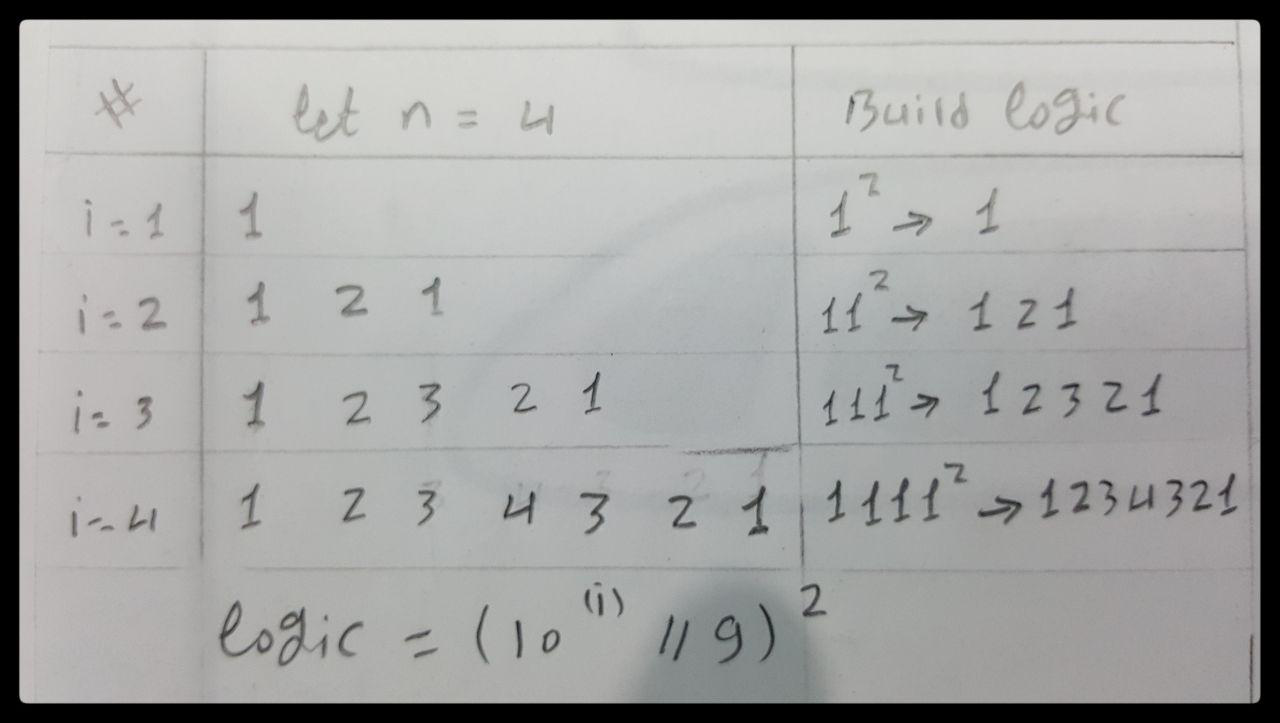 # let n = 4 Build logic
i = 1 1 1² → 1
i = 2 1 2 1 11² → 1 2 1
i = 3 1 2 3 2 1 111² → 1 2 3 2 1
i = 4 1 2 3 4 3 2 1 1111² → 1 2 3 4 3 2 1
logic = (10⁽ⁱ⁾ // 9)²